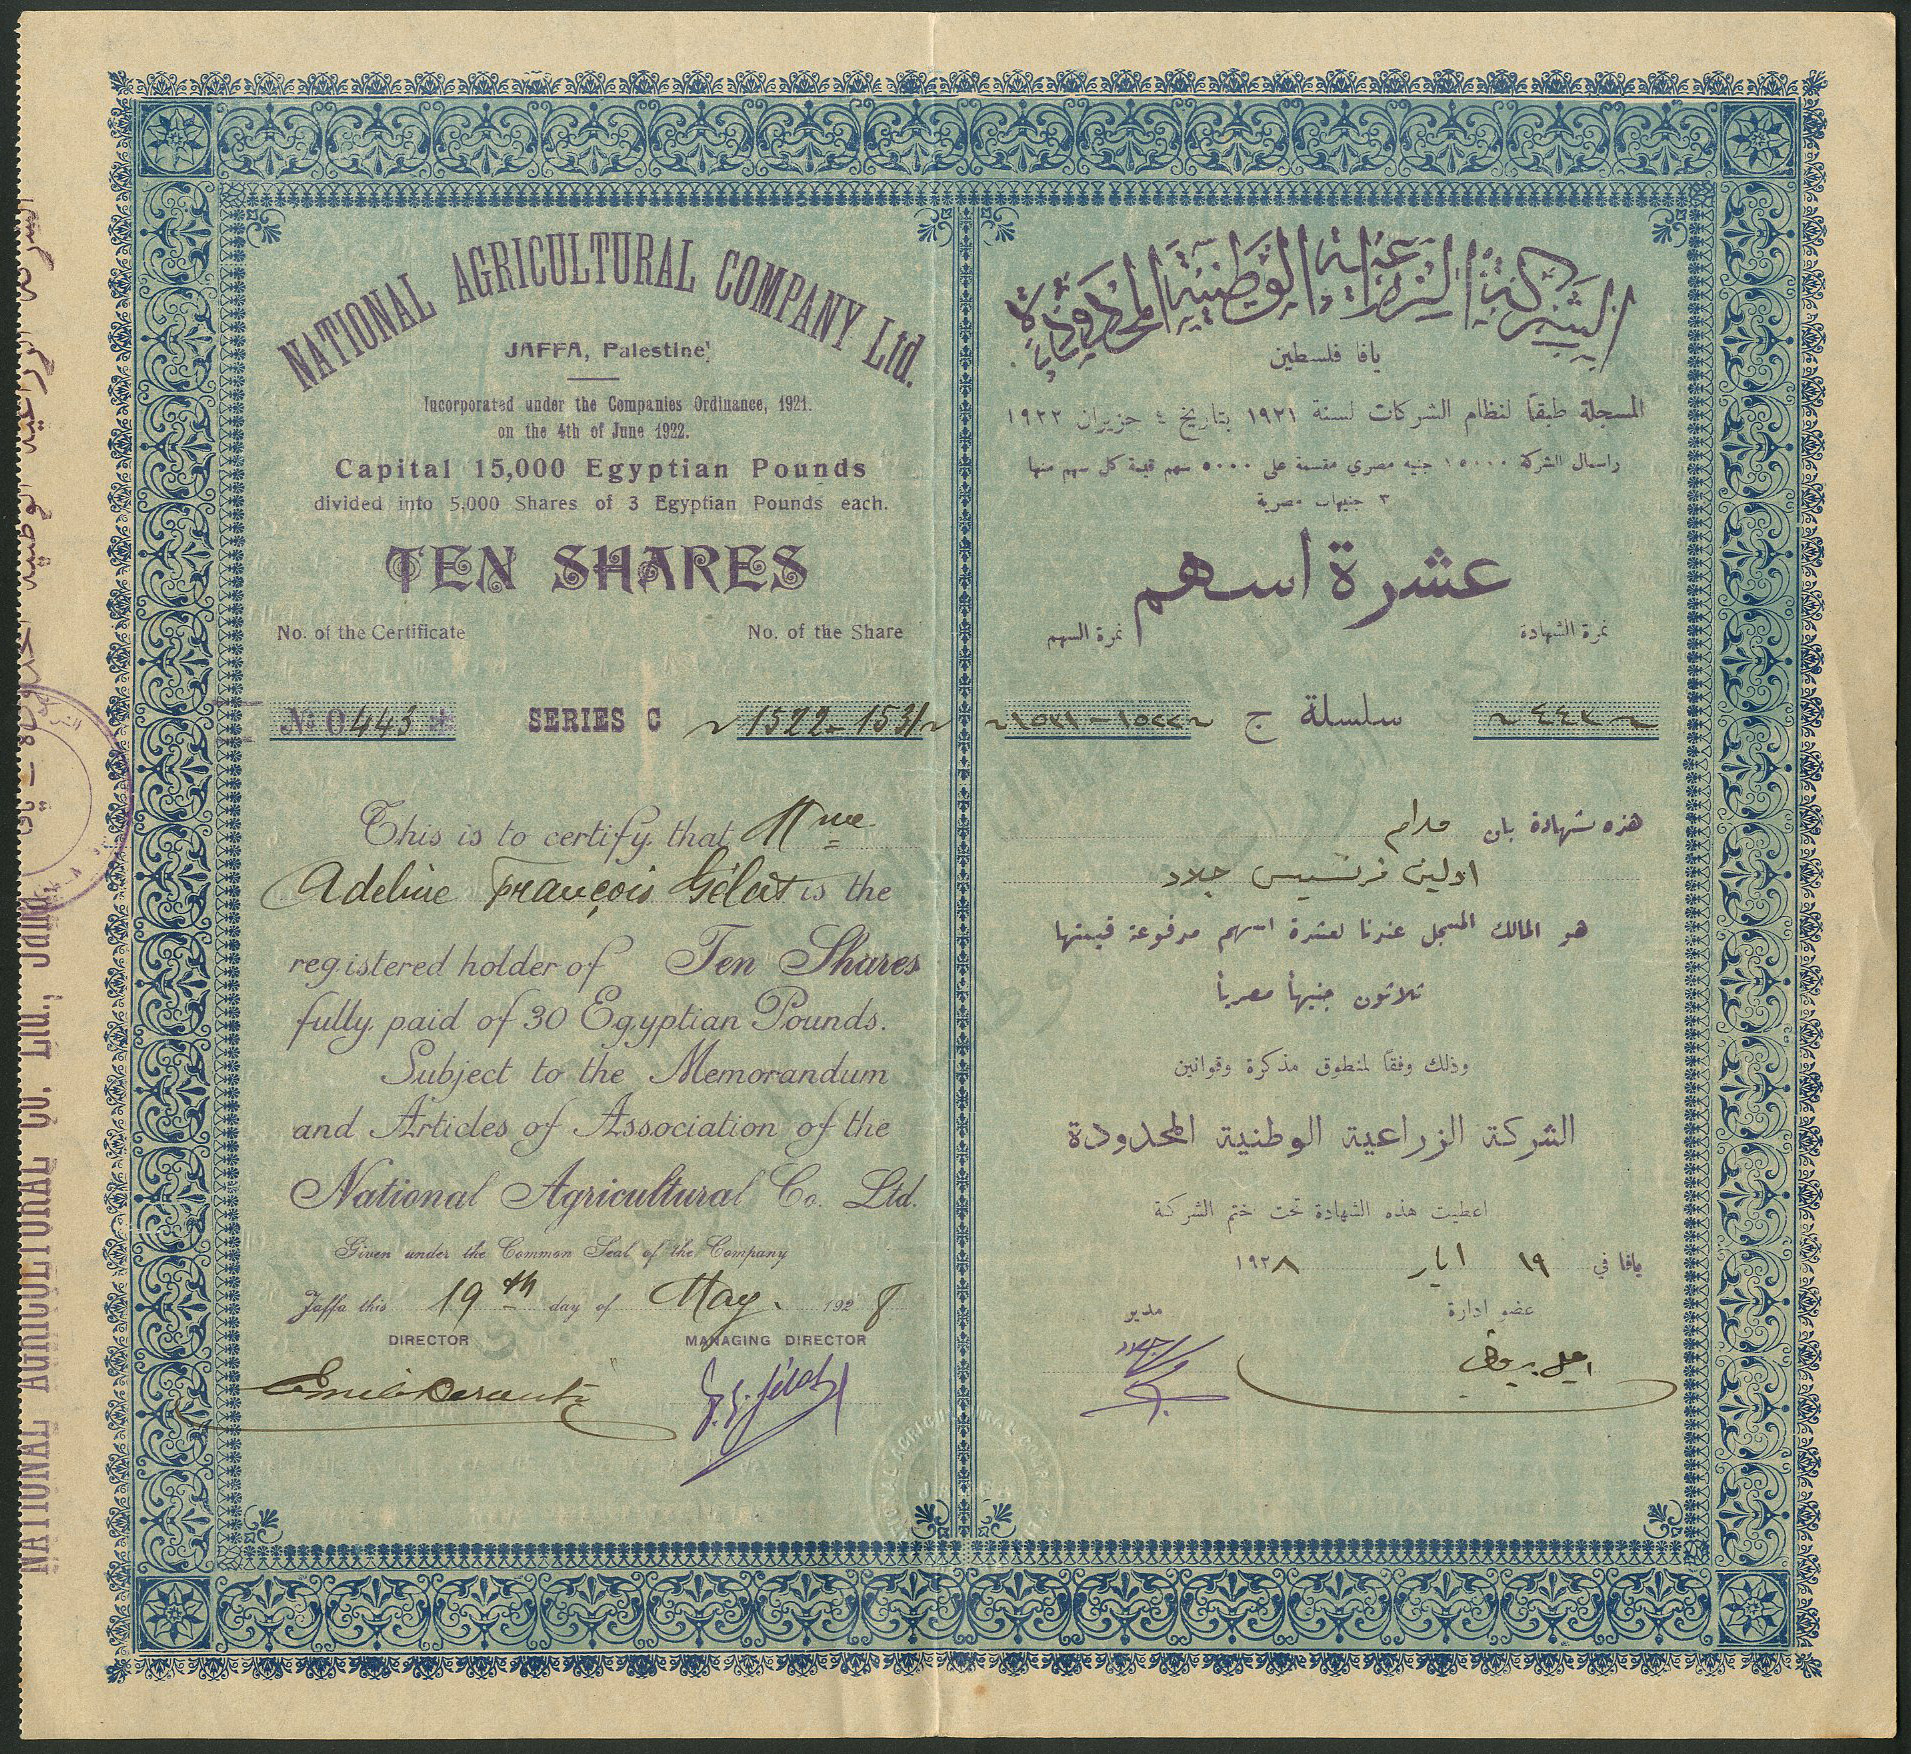 NATIONAL AGRICULTURAL COMPANY Ltd.
JAFFA, Palestine
Incorporated under the Companies Ordinance, 1921.
on the 4th of June 1922.
Capital 15,000 Egyptian Pounds
divided into 5,000 Shares of 3 Egyptian Pounds each.
TEN SHARES
No. of the Certificate No. of the Share
No 0443 SERIES C 1522-1531
This is to certify that Mme
Adeline François Gélat is the
registered holder of Ten Shares
fully paid of 30 Egyptian Pounds.
Subject to the Memorandum
and Articles of Association of the
National Agricultural Co. Ltd.
Given under the Common Seal of the Company
Jaffa this 19th day of May. 1928
DIRECTOR MANAGING DIRECTOR
الشركة الزراعية الوطنية المحدودة
يافا فلسطين
المسجلة طبقا لنظام الشركات لسنة ١٩٢١ بتاريخ ٤ حزيران ١٩٢٢
راسمال الشركة ١٥٠٠٠ جنيه مصري مقسمة على ٥٠٠٠ سهم قيمة كل سهم منها
٣ جنيهات مصرية
عشرة اسهم
نمرة الشهادة نمرة السهم
٤٤٣ سلسلة ج ١٥٢٢-١٥٣١
هذه شهادة بان مدام
ادلين فرنسيس جلاد
هو المالك المسجل عندنا لعشرة اسهم مدفوعة قيمتها
ثلاثون جنيهاً مصرياً
وذلك وفقا لمنطوق مذكرة وقوانين
الشركة الزراعية الوطنية المحدودة
اعطيت هذه الشهادة تحت ختم الشركة
يافا في ١٩ ايار ١٩٢٨
عضو ادارة مدير
NATIONAL AGRICULTURAL Co. Ltd., Jaffa,